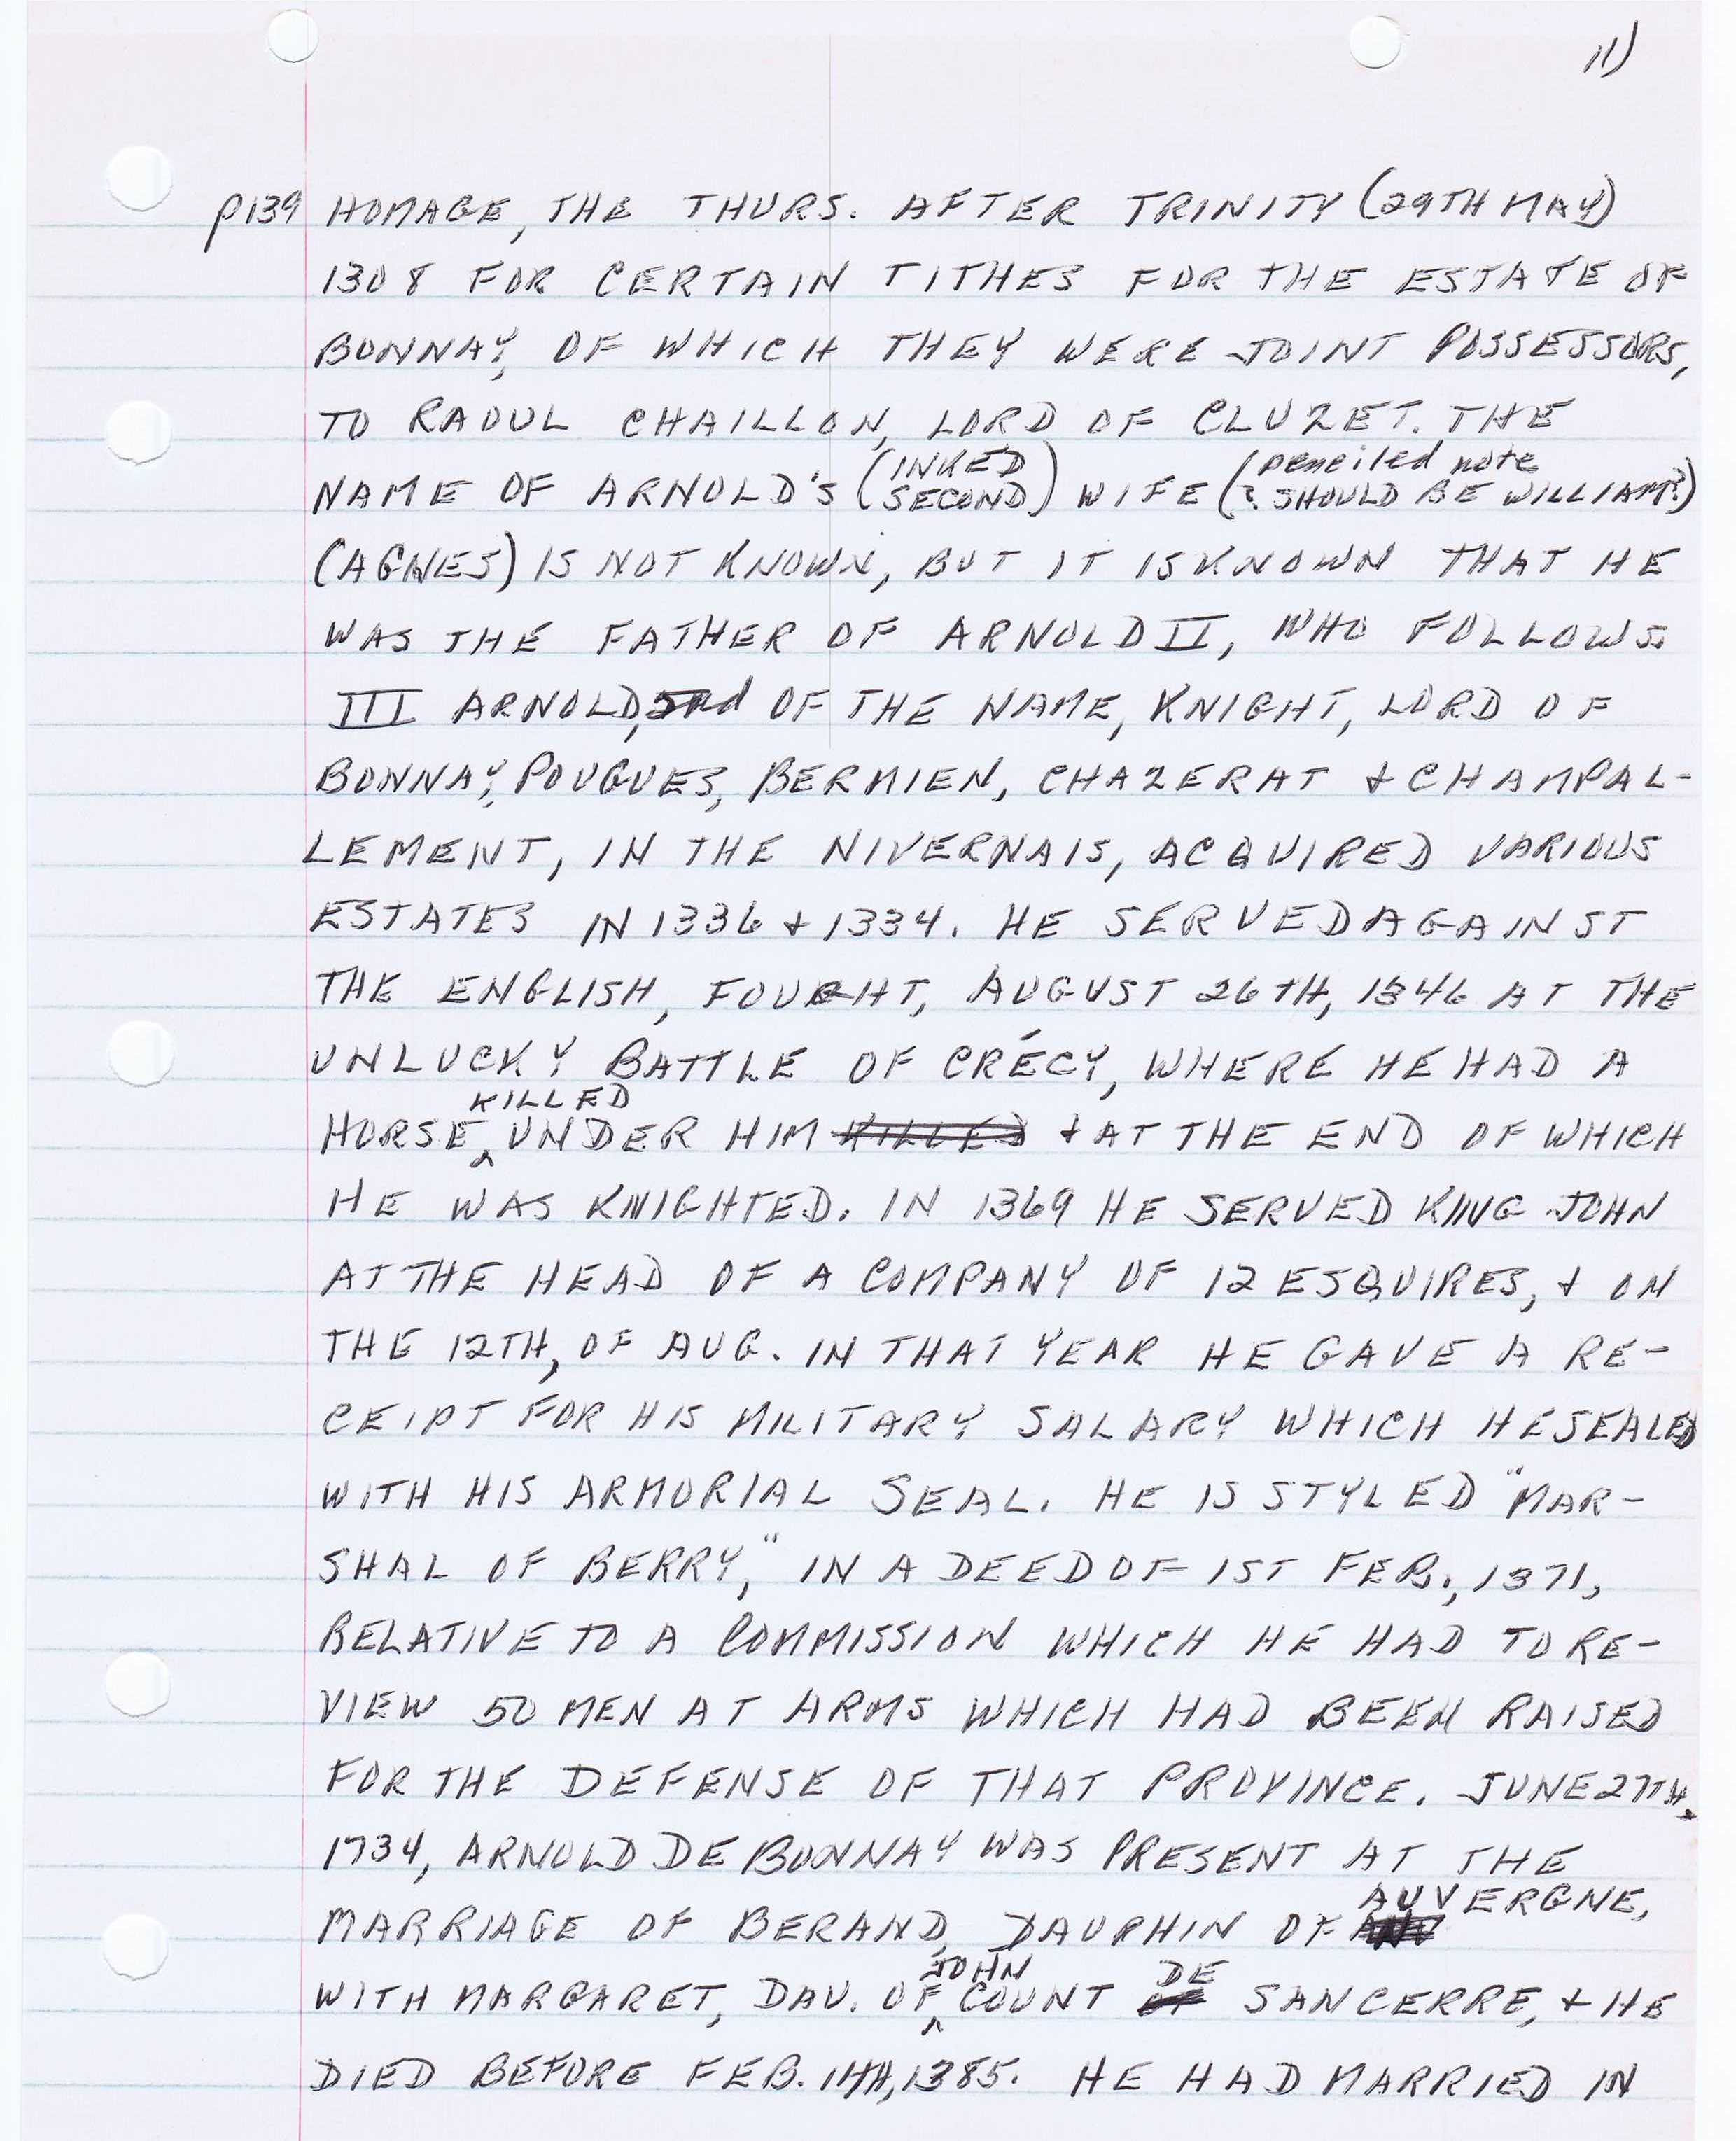 11)
p139 HOMAGE, THE THURS. AFTER TRINITY (29TH MAY)
1308 FOR CERTAIN TITHES FOR THE ESTATE OF
BONNAY, OF WHICH THEY WERE JOINT POSSESSORS,
TO RAOUL CHAILLON, LORD OF CLUZET. THE
NAME OF ARNOLD'S (INKED SECOND) WIFE (penciled note ? SHOULD BE WILLIAM?)
(AGNES) IS NOT KNOWN, BUT IT IS KNOWN THAT HE
WAS THE FATHER OF ARNOLD II, WHO FOLLOWS.
III ARNOLD, 2nd OF THE NAME, KNIGHT, LORD OF
BONNAY, POUGUES, BERMIEN, CHAZERAT + CHAMPAL-
LEMENT, IN THE NIVERNAIS, ACQUIRED VARIOUS
ESTATES IN 1336 + 1334. HE SERVED AGAINST
THE ENGLISH, FOUGHT, AUGUST 26TH, 1346 AT THE
UNLUCKY BATTLE OF CRÉCY, WHERE HE HAD A
HORSE KILLED UNDER HIM KILLED + AT THE END OF WHICH
HE WAS KNIGHTED. IN 1369 HE SERVED KING JOHN
AT THE HEAD OF A COMPANY OF 12 ESQUIRES, + ON
THE 12TH, OF AUG. IN THAT YEAR HE GAVE A RE-
CEIPT FOR HIS MILITARY SALARY WHICH HE SEALED
WITH HIS ARMORIAL SEAL. HE IS STYLED "MAR-
SHAL OF BERRY," IN A DEED OF 1ST FEB., 1371,
RELATIVE TO A COMMISSION WHICH HE HAD TO RE-
VIEW 50 MEN AT ARMS WHICH HAD BEEN RAISED
FOR THE DEFENSE OF THAT PROVINCE. JUNE 27TH,
1734, ARNOLD DE BONNAY WAS PRESENT AT THE
MARRIAGE OF BERAND, DAUPHIN OF AUVERGNE,
WITH MARGARET, DAU. OF JOHN COUNT OF DE SANCERRE, + HE
DIED BEFORE FEB. 1385. HE HAD MARRIED IN